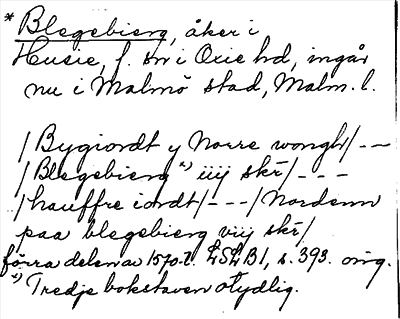 * Blegebierg, åker i
Husie, f. sn i Oxie hd, ingår
nu i Malmö stad, Malm. l.
/Bygiordt y Norre wongh/ - -
/Blegebierg *) iiij skr/ - - -
/hauffre iordt/ - - - /Nordenn
paa blegebierg viij skr/
förra delen av 1570-t. LSLB1, s. 393. orig.
*) Tredje bokstaven otydlig.